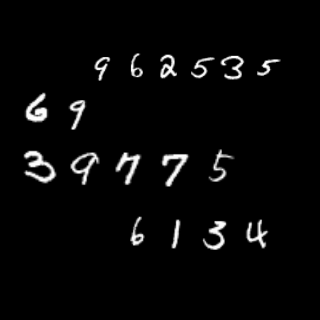 962535
69
39775
6134